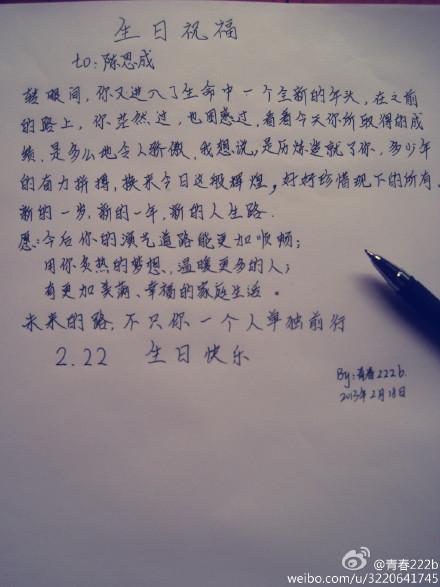 生日祝福
to:陈思成
转眼间,你又进入了生命中一个全新的年头,在之前
的路上,你茫然过,也困惑过,看着今天你所取得的成
绩,是多么地令人骄傲,我想说,是历炼造就了你,多少年
的奋力拼搏,换来今日这般辉煌,好好珍惜现下的所有,
新的一岁,新的一年,新的人生路.
愿:今后你的演艺道路能更加顺畅;
用你炙热的梦想、温暖更多的人;
有更加美满、幸福的家庭生活。
未来的路,不只你一个人单独前行
2.22 生日快乐
By:青春222b.
2013年2月18日
@青春222b
weibo.com/u/3220641745